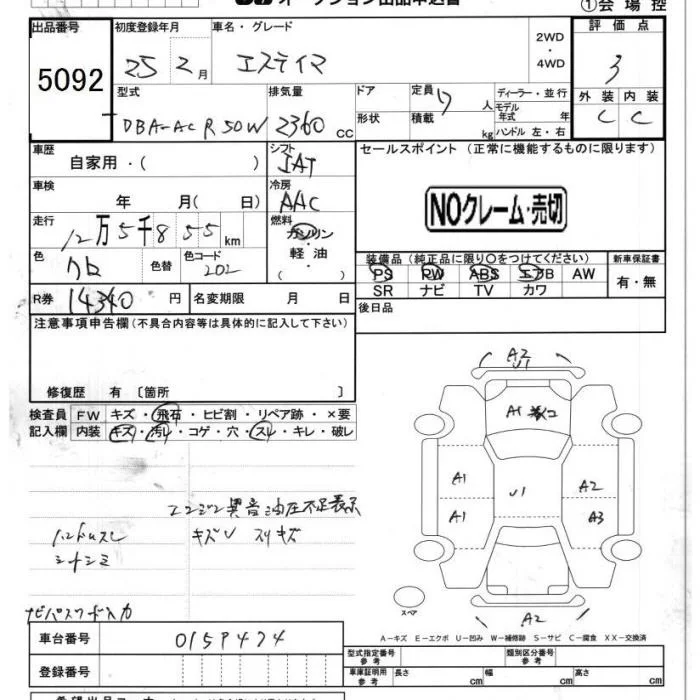 オークション出品申込書
①会場控
出品番号 初度登録年月 車名・グレード 評価点
5092 25 2月 エスティマ 2WD・4WD 3
型式 排気量 ドア 定員 7人 ディーラー・並行 外装 内装
DBA-ACR50W 2360cc 形状 積載 kg モデル年式 年 ハンドル 左・右 C C
車歴 シフト セールスポイント（正常に機能するものに限ります）
自家用・（　） IAT
車検 冷房
年 月（ 日） AAC NOクレーム・売切
走行 燃料
12万5千855km ガソリン・軽油・（　）
色 色替 色コード 装備品（純正品に限り〇をつけてください） 新車保証書
クロ 202 PS PW ABS エアB AW 有・無
SR ナビ TV カワ
R券 14340円 名変期限 月 日 後日品
注意事項申告欄（不具合内容等は具体的に記入して下さい）
修復歴 有〔箇所　〕
検査員 FW キズ・飛石・ヒビ割・リペア跡・×要
記入欄 内装 キズ・汚レ・コゲ・穴・スレ・キレ・破レ
A2
U1
A1
A1 A2
U1
A1 A3
A2
スペア
エンジン異音油圧不足表示
ハンドルスレ キズU スリキズ
シートシミ
ナビパスワード入力
A-キズ E-エクボ U-凹み W-補修跡 S-サビ C-腐食 XX-交換済
車台番号 0159474
型式指定番号 参考 類別区分番号 参考
登録番号 車庫証明用 参考 長さ cm 幅 cm 高さ cm